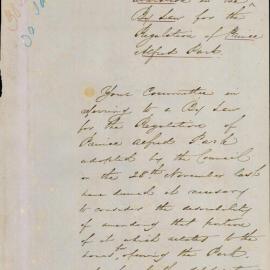 By Law for the
Regulation of Prince
Alfred Park
Your Committee in
referring to a By Law
for the Regulation of
Prince Alfred Park
adopted by the Council
on the 28th November last
have deemed it necessary
to consider the desirability
of amending that portion
of it which relates to the
hours of opening the Park